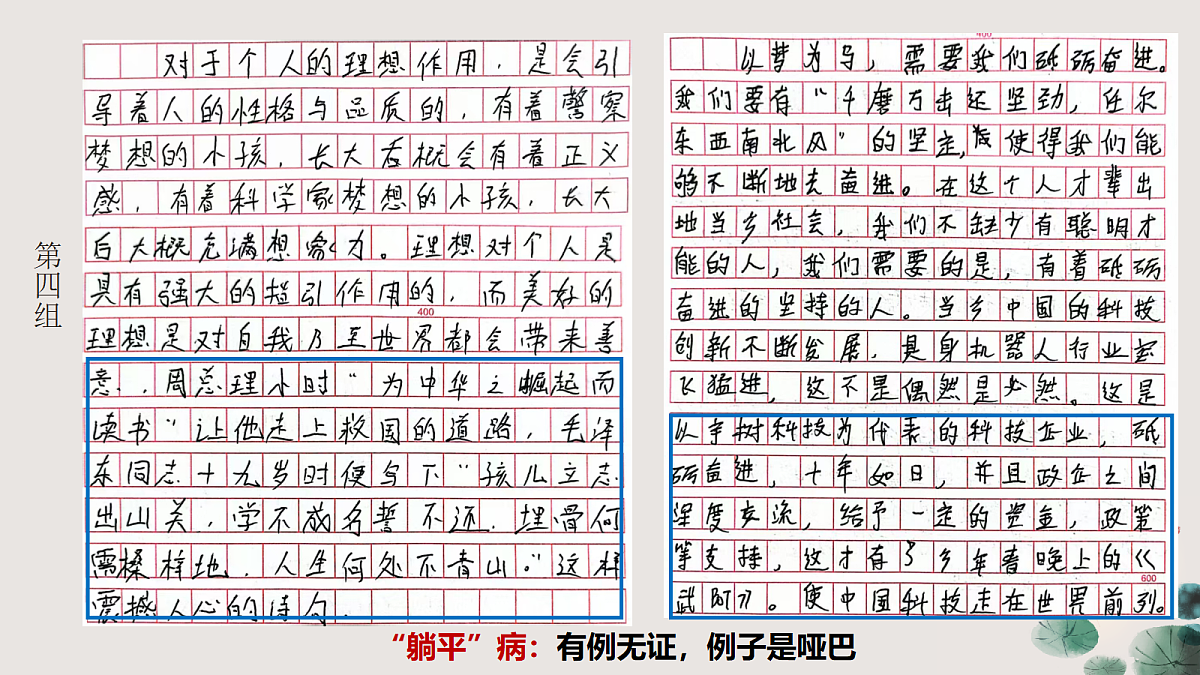 第四组
对于个人的理想作用，是会引
导着人的性格与品质的，有着警察
梦想的小孩，长大后概会有着正义
感，有着科学家梦想的小孩，长大
后大概充满想象力。理想对个人是
具有强大的指引作用的，而美好的
400
理想是对自我乃至世界都会带来善
意，周总理小时“为中华之崛起而
读书”让他走上救国的道路，毛泽
东同志十九岁时便写下“孩儿立志
出山关，学不成名誓不还，埋骨何
需桑梓地，人生何处不青山。”这样
震撼人心的诗句，
400
以梦为马，需要我们砥砺奋进。
我们要有“千磨万击还坚劲，任尔
东西南北风”的坚定，使得我们能
够不断地去奋进。在这个人才辈出
地当今社会，我们不缺少有聪明才
能的人，我们需要的是，有着砥砺
奋进的坚持的人。当今中国的科技
创新不断发展，具身机器人行业突
飞猛进，这不是偶然是必然。这是
以宇树科技为代表的科技企业，砥
砺奋进，十年如日，并且政企之间
深度交流，给予一定的资金，政策
等支持，这才有了今年春晚上的《
600
武BOT》。使中国科技走在世界前列。
“躺平”病：有例无证，例子是哑巴